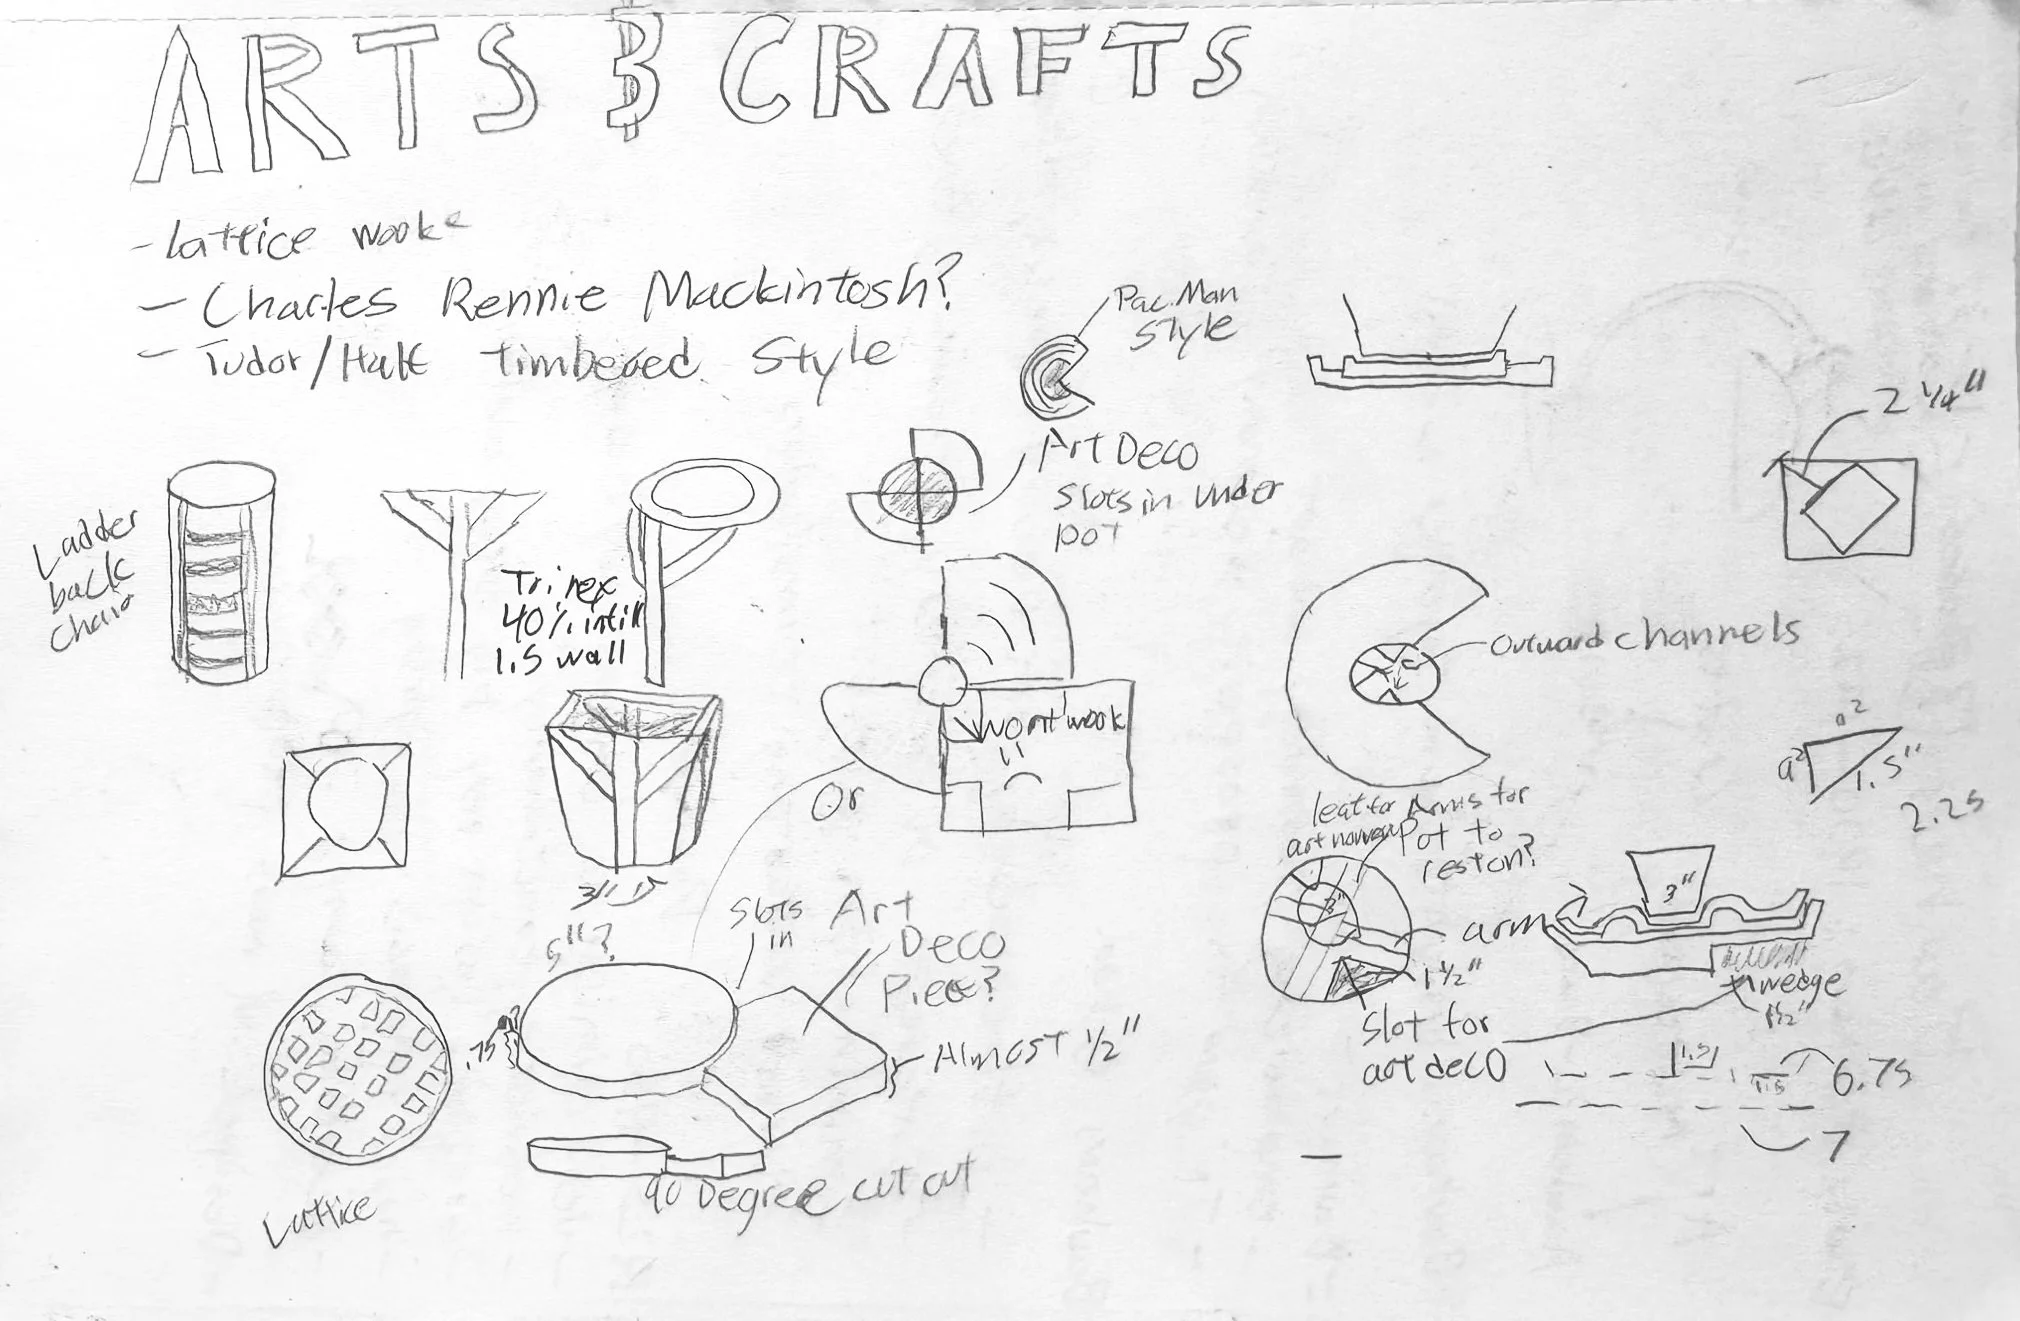 ARTS & CRAFTS
- Lattice wook
- Charles Rennie Mackintosh?
- Tudor/Half timbered Style
Pac Man
Style
2 1/4"
Art Deco
Slots in under
pot
Ladder
back
chair
Tri hex
40% infill
1.5 wall
outward channels
Wont wook
Or
a²
a²
1.5"
2.25
leaf for
art nouveau
Arms for
Pot to
rest on?
3"
3"
arm
1 1/2"
wedge
1 1/2"
Slot for
art deco
1.5
1.5
6.75
7
5"?
Slots
in
Art
Deco
Piece?
.75
Almost 1/2"
90 Degree cut out
Lattice